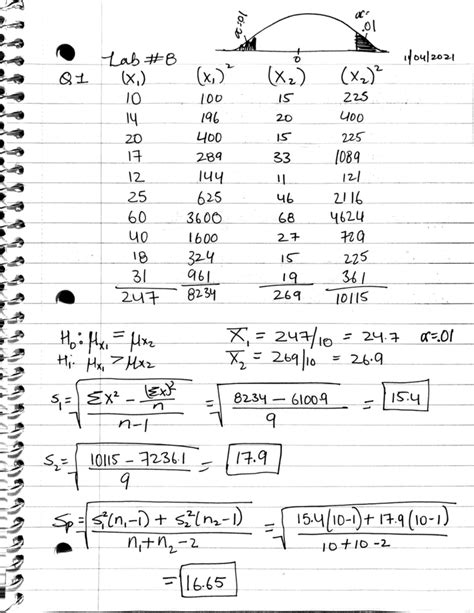 α=.01 α=.01
0
Lab #8 11/04/2021
Q1 (X₁) (X₁)² (X₂) (X₂)²
10 100 15 225
14 196 20 400
20 400 15 225
17 289 33 1089
12 144 11 121
25 625 46 2116
60 3600 68 4624
40 1600 27 729
18 324 15 225
31 961 19 361
247 8234 269 10115
H₀: μx₁ = μx₂ X̄₁ = 247/10 = 24.7 α=.01
H₁: μx₁ > μx₂ X̄₂ = 269/10 = 26.9
S₁ = √((ΣX² − (ΣX)²/n)/(n−1)) = √((8234 − 6100.9)/9) = 15.4
S₂ = √((10115 − 7236.1)/9) = 17.9
Sp = √((S₁²(n₁−1) + S₂²(n₂−1))/(n₁+n₂−2)) = √((15.4(10−1) + 17.9(10−1))/(10+10−2))
= 16.65